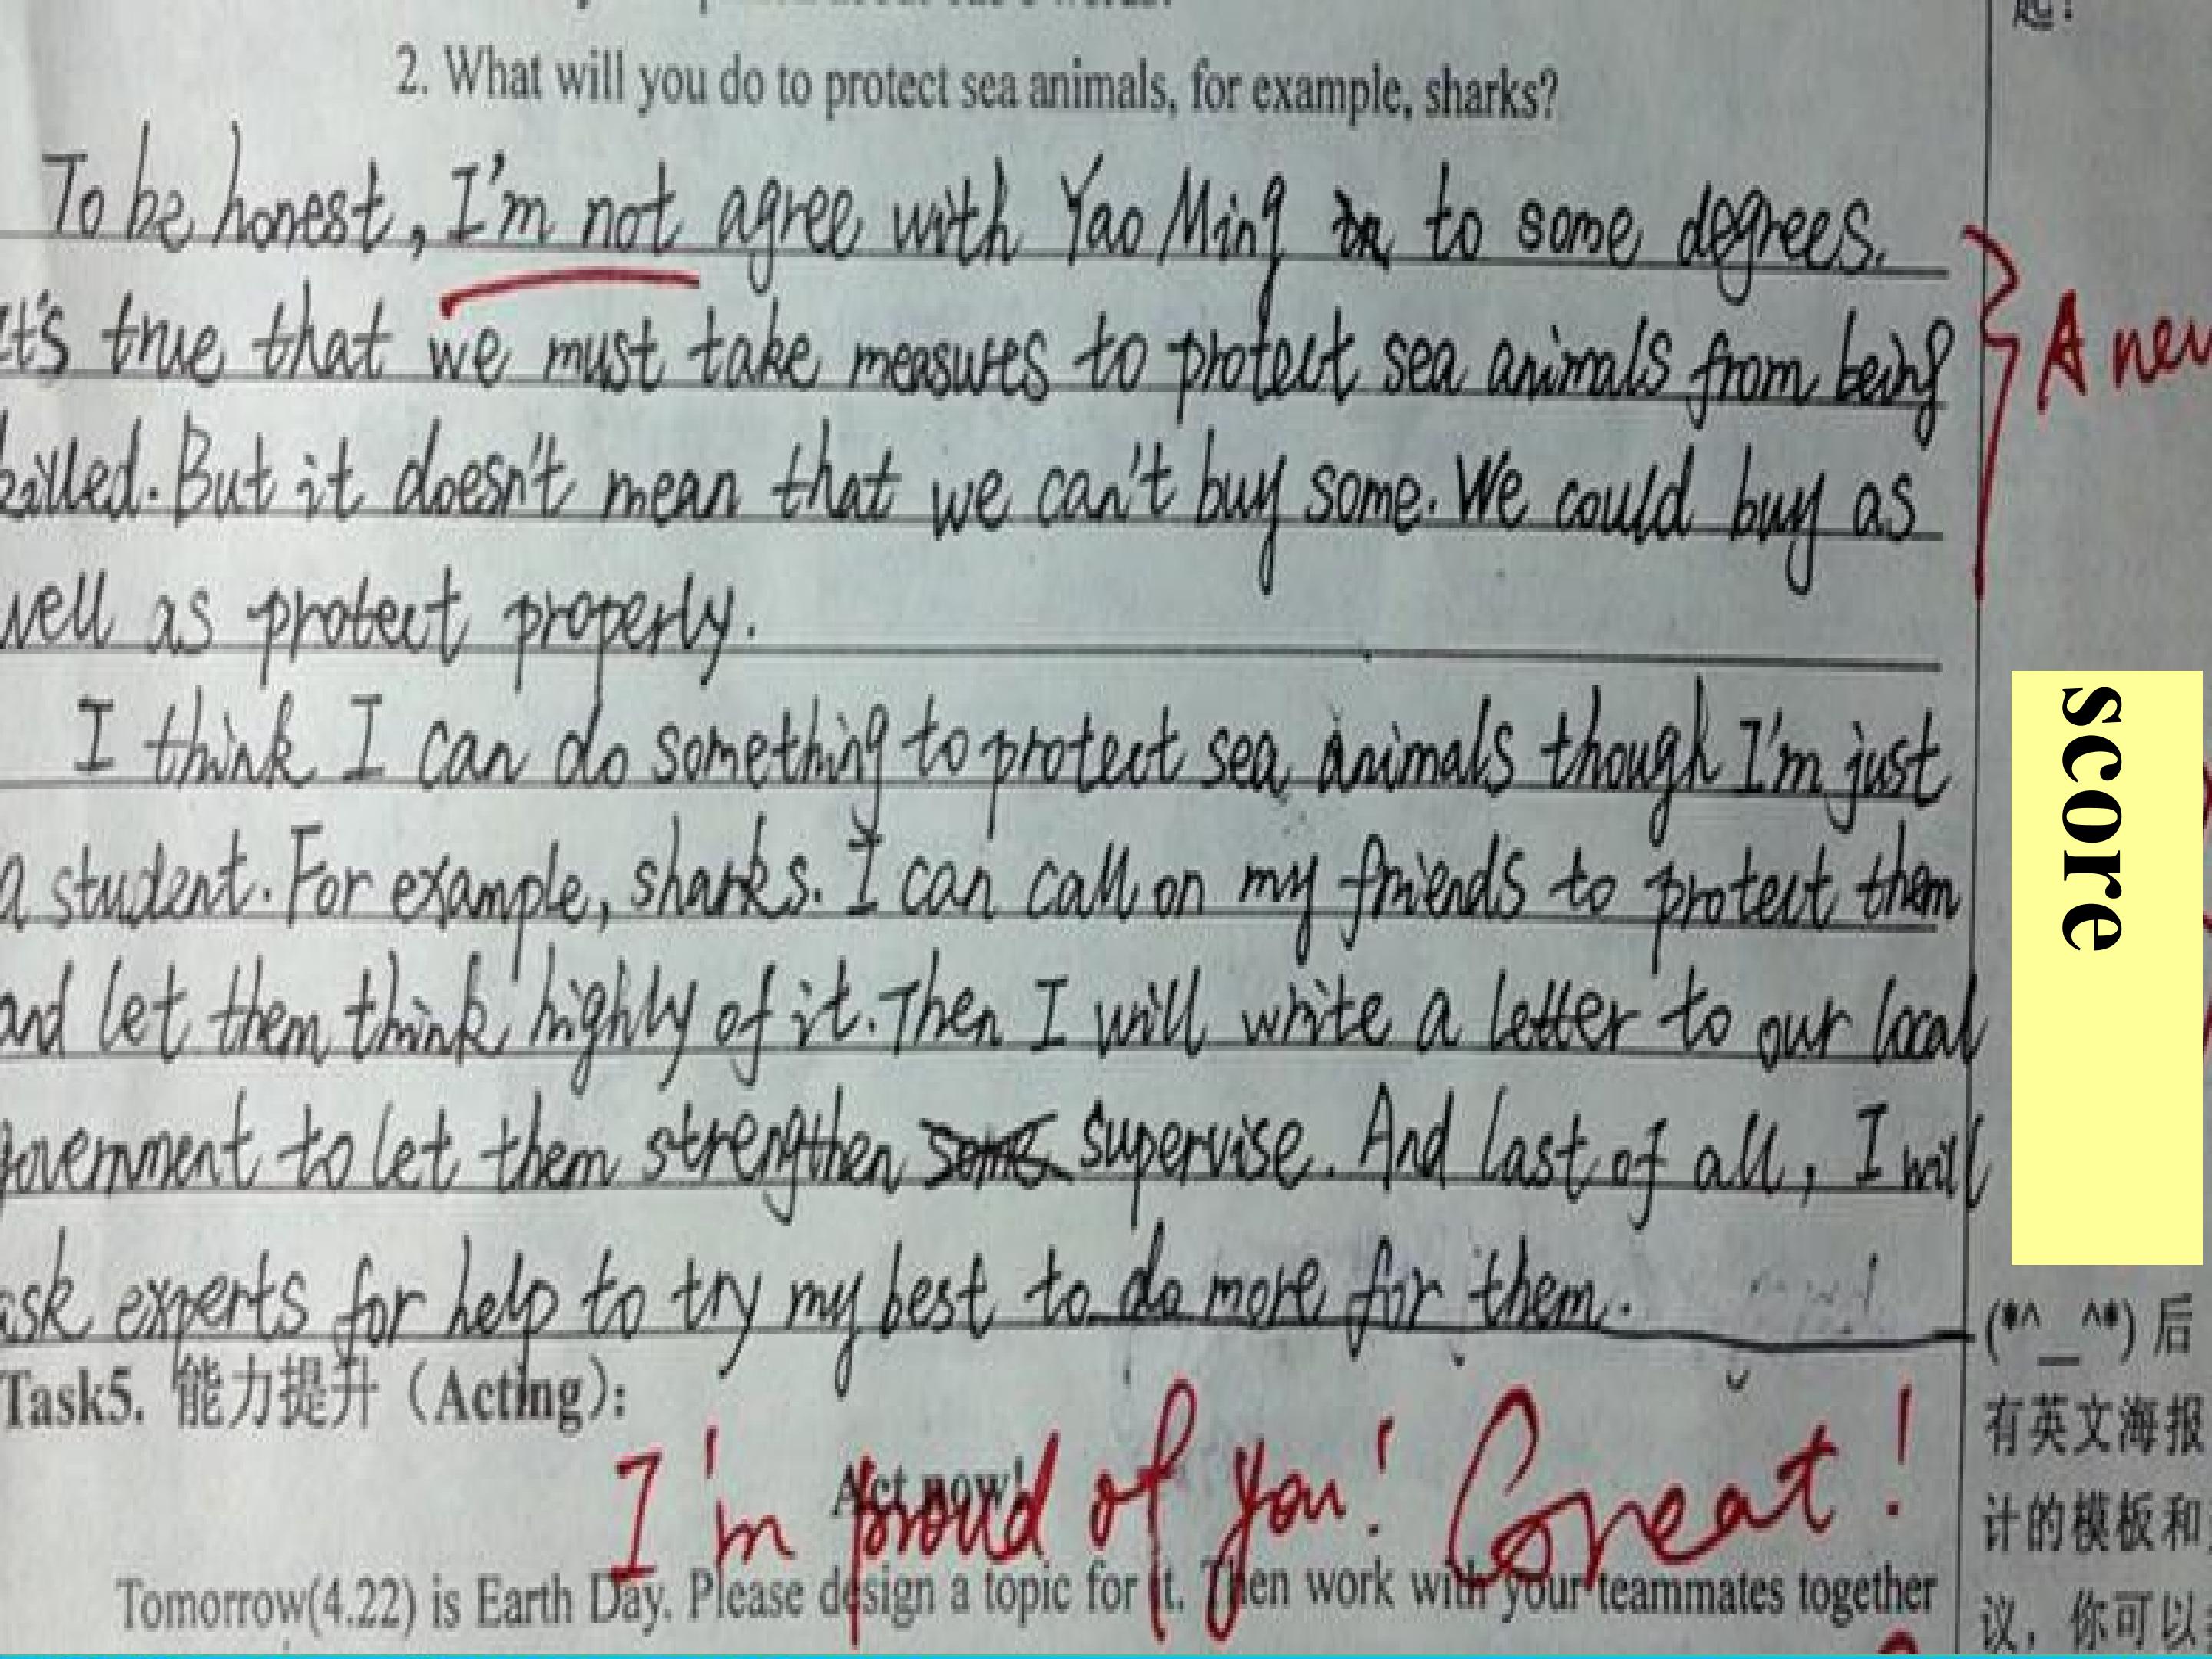 2. What will you do to protect sea animals, for example, sharks?
To be honest, I'm not agree with Yao Ming to some degrees.
It's true that we must take measures to protect sea animals from being
killed. But it doesn't mean that we can't buy some. We could buy as
well as protect properly.
I think I can do something to protect sea animals though I'm just
a student. For example, sharks. I can call on my friends to protect them
and let them think highly of it. Then I will write a letter to our local
government to let them strengthen supervise. And last of all, I will
ask experts for help to try my best to do more for them.
Task5. 能力提升（Acting）:
I'm proud of you! Great!
Act now!
Tomorrow(4.22) is Earth Day. Please design a topic for it. Then work with your teammates together
起！
A new
score
(*^__^*) 后
有英文海报
计的模板和
议，你可以